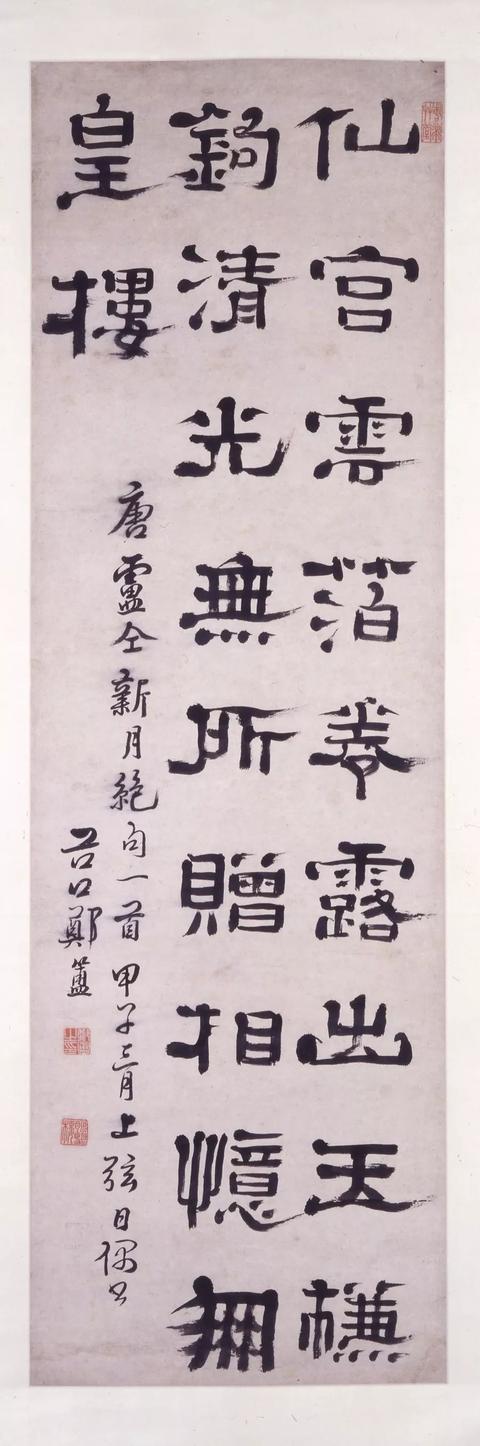 仙宫雲箔卷露出玉㡘
鉤清光無所贈相憶鳳
皇樓
唐盧仝新月絕句一首甲子三月上弦日偶書
谷口鄭簠